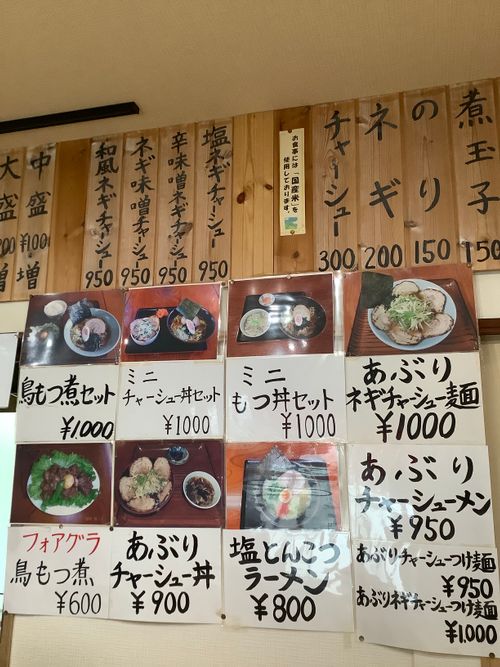 煮玉子
150
のり
150
ネギ
200
チャーシュー
300
お食事には「国産米」を
使用しております。
塩ネギチャーシュー
950
辛味噌ネギチャーシュー
950
ネギ味噌チャーシュー
950
和風ネギチャーシュー
950
中盛
¥100
増
大盛
増
鳥もつ煮セット
¥1,000
ミニ
チャーシュー丼セット
¥1000
ミニ
もつ丼セット
¥1000
あぶり
ネギチャーシュー麺
¥1000
フォアグラ
鳥もつ煮
¥600
あぶり
チャーシュー丼
¥900
塩とんこつ
ラーメン
¥800
あぶり
チャーシューメン
¥950
あぶりチャーシューつけ麺
¥950
あぶりネギチャーシューつけ麺
¥1,000